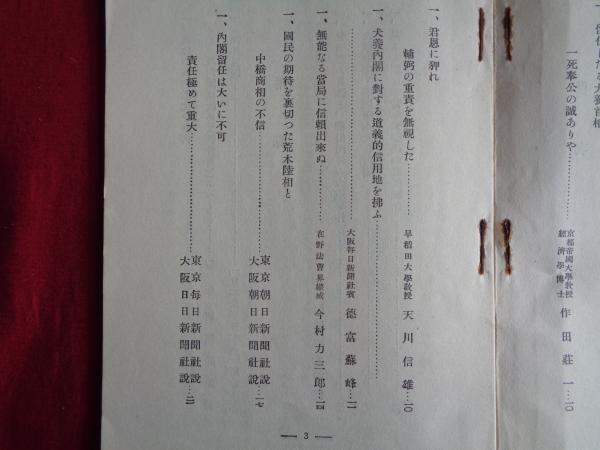 一死奉公の誠ありや
京都帝國大學教授
經濟學博士
作田莊一…一〇
一、君恩に狎れ
輔弼の重責を無視した
早稻田大學敎授 天川信雄…一〇
一、犬養內閣に對する道義的信用地を拂ふ
大阪每日新聞社賓 德富蘇峰…一二
一、無能なる當局に信賴出來ぬ
在野法曹界權威 今村力三郎…一四
一、國民の期待を裏切つた荒木陸相と
中橋商相の不信
東京朝日新聞社說
大阪朝日新聞社說…一七
一、內閣留任は大いに不可
責任極めて重大
東京每日新聞社說
大阪日日新聞社說…二一
— 3 —